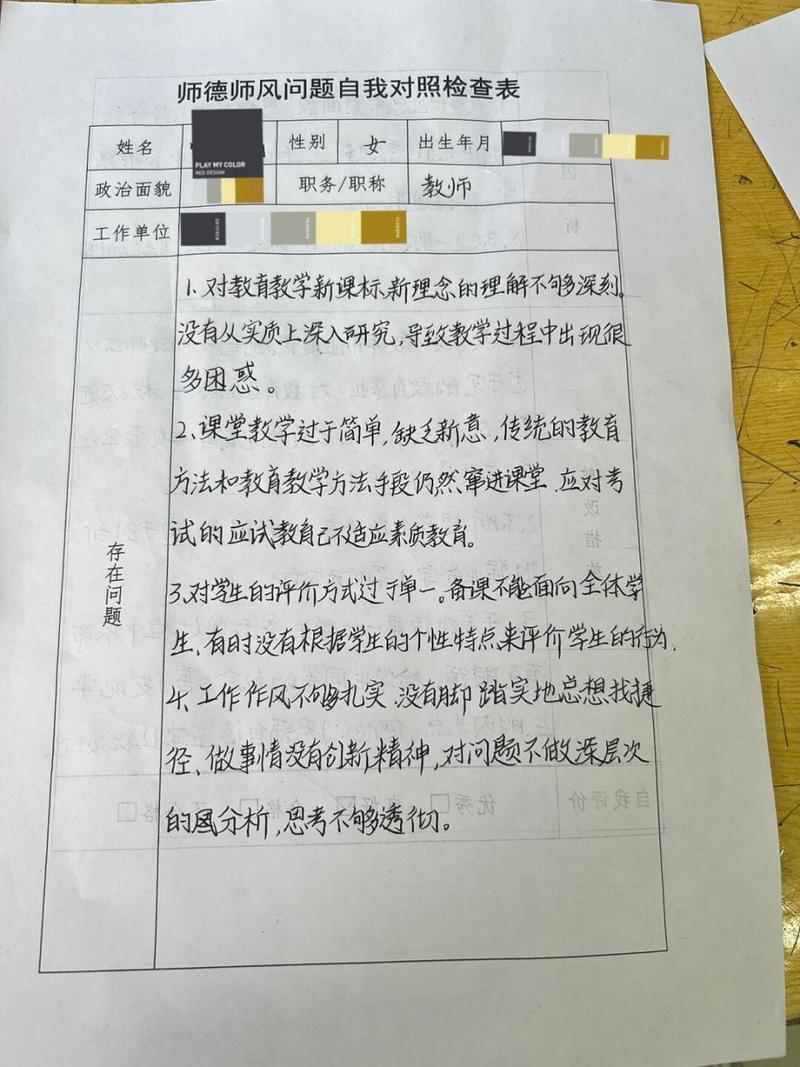 师德师风问题自我对照检查表
姓名 性别 女 出生年月
PLAY MY COLOR
RED DESIGN
政治面貌 职务/职称 教师
工作单位
存在问题
1. 对教育教学新课标、新理念的理解不够深刻。
没有从实质上深入研究,导致教学过程中出现很
多困惑。
2、课堂教学过于简单,缺乏新意,传统的教育
方法和教育教学方法手段仍然窜进课堂.应对考
试的应试教育已不适应素质教育。
3、对学生的评价方式过于单一。备课不能面向全体学
生、有时没有根据学生的个性特点来评价学生的行为.
4、工作作风不够扎实.没有脚踏实地总想找捷
径、做事情没有创新精神,对问题不做深层次
的分析,思考不够透彻。
自我评价 优秀□